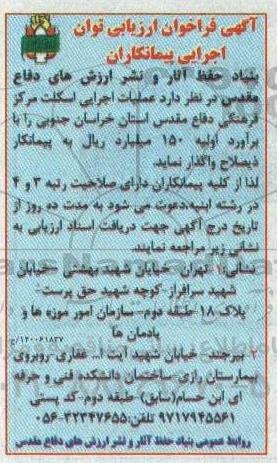 آگهی فراخوان ارزیابی توان
اجرایی پیمانکاران
بنیاد حفظ آثار و نشر ارزش های دفاع
مقدس در نظر دارد عملیات اجرایی اسکلت مرکز
فرهنگی دفاع مقدس استان خراسان جنوبی را با
برآورد اولیه ۱۵۰ میلیارد ریال به پیمانکار
ذیصلاح واگذار نماید.
لذا از کلیه پیمانکاران دارای صلاحیت رتبه ۳ و ۴
در رشته ابنیه،دعوت می شود به مدت ده روز از
تاریخ درج آگهی جهت دریافت اسناد ارزیابی به
نشانی زیر مراجعه نمایند.
نشانی:۱- تهران- خیابان شهید بهشتی –خیابان
شهید سرافراز-کوچه شهید حق پرست-
پلاک ۱۸-طبقه دوم–سازمان امور موزه ها و
یادمان ها
۲- بیرجند- خیابان شهید آیت ا... غفاری-روبروی
بیمارستان رازی-ساختمان دانشکده فنی و حرفه
ای ابن حسام(سابق)-طبقه دوم-کد پستی
۹۷۱۷۹۴۵۵۶۱ تلفن:۳۲۳۴۷۶۵۵-۰۵۶
روابط عمومی بنیاد حفظ آثار و نشر ارزش های دفاع مقدس